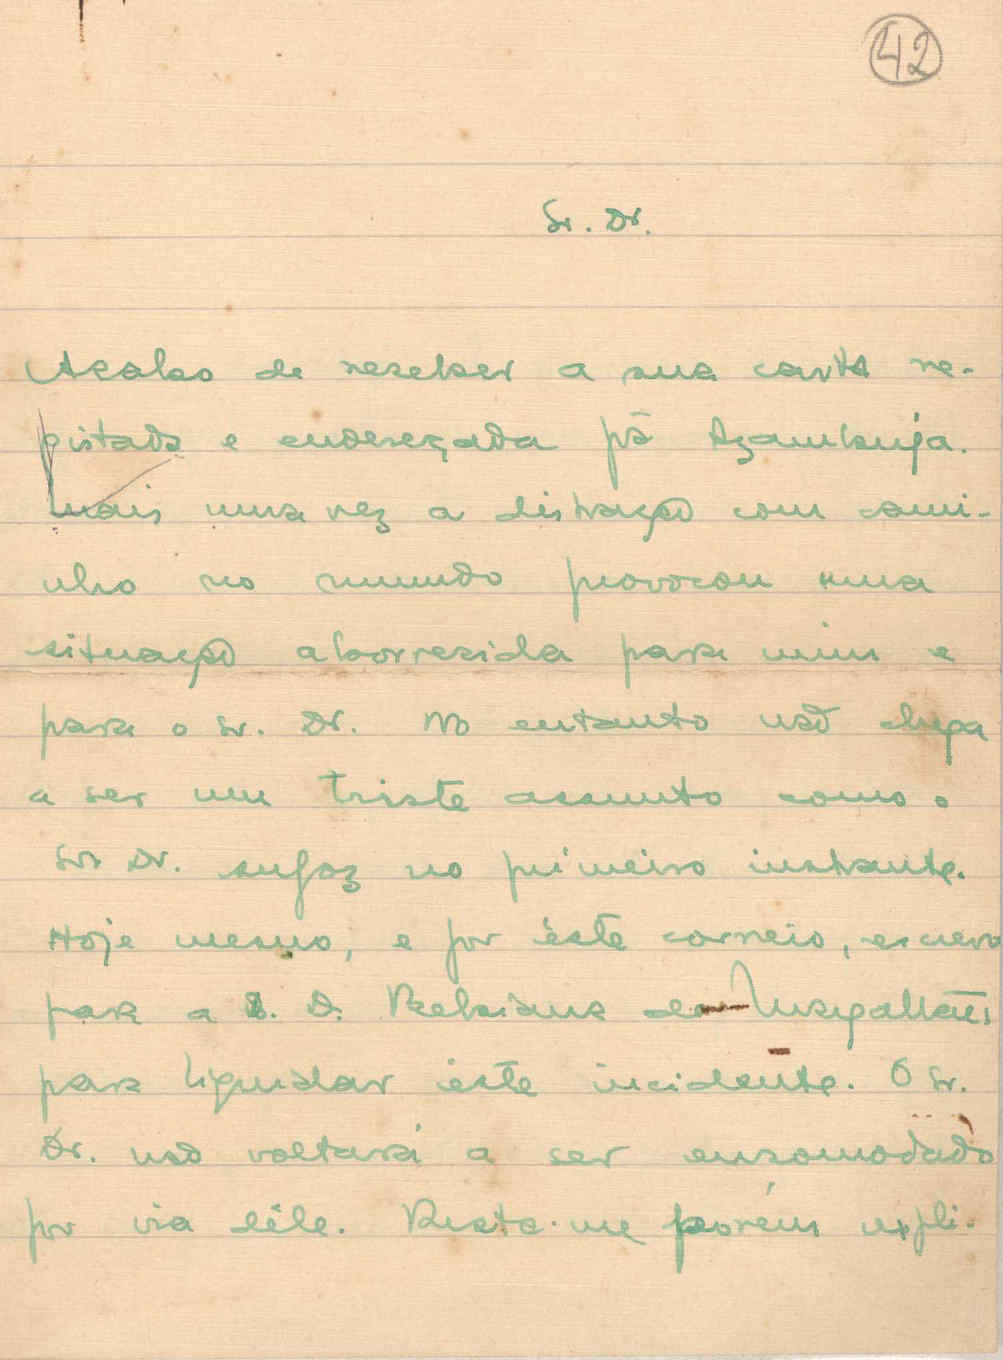 42
Sr. Dr.
Acabo de receber a sua carta re-
gistada e endereçada pã Azambuja.
Mais uma vez a distração com cami-
nho no mundo provocou uma
situação aborrecida para mim e
para o Sr. Dr. No entanto não chega
a ser um triste assunto como o
Sr. Dr. supoz no primeiro instante.
Hoje mesmo, e por êste correio, escrevo
para a D. de Magalhães
para liquidar êste incidente. O Sr.
Dr. não voltará a ser encomodado
por via dêle. Resta-me porém expli-